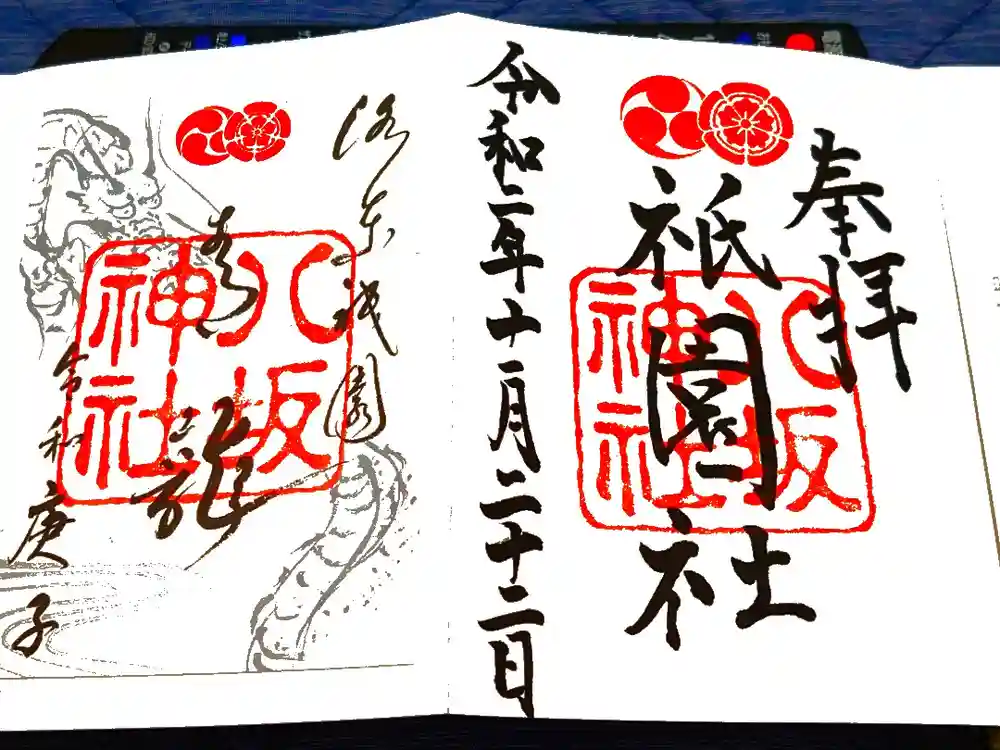 奉拝
祇園社
八坂
神社
令和二年十一月二十二日
洛東祇園
八坂
神社
青龍
令和庚子